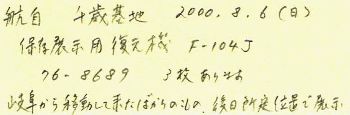 航自 千歳基地 2000.8.6(日)
保存展示用復元機 F-104J
76-8689 3枚あります
岐阜から移動して来たばかりのもの。後日所定位置で展示